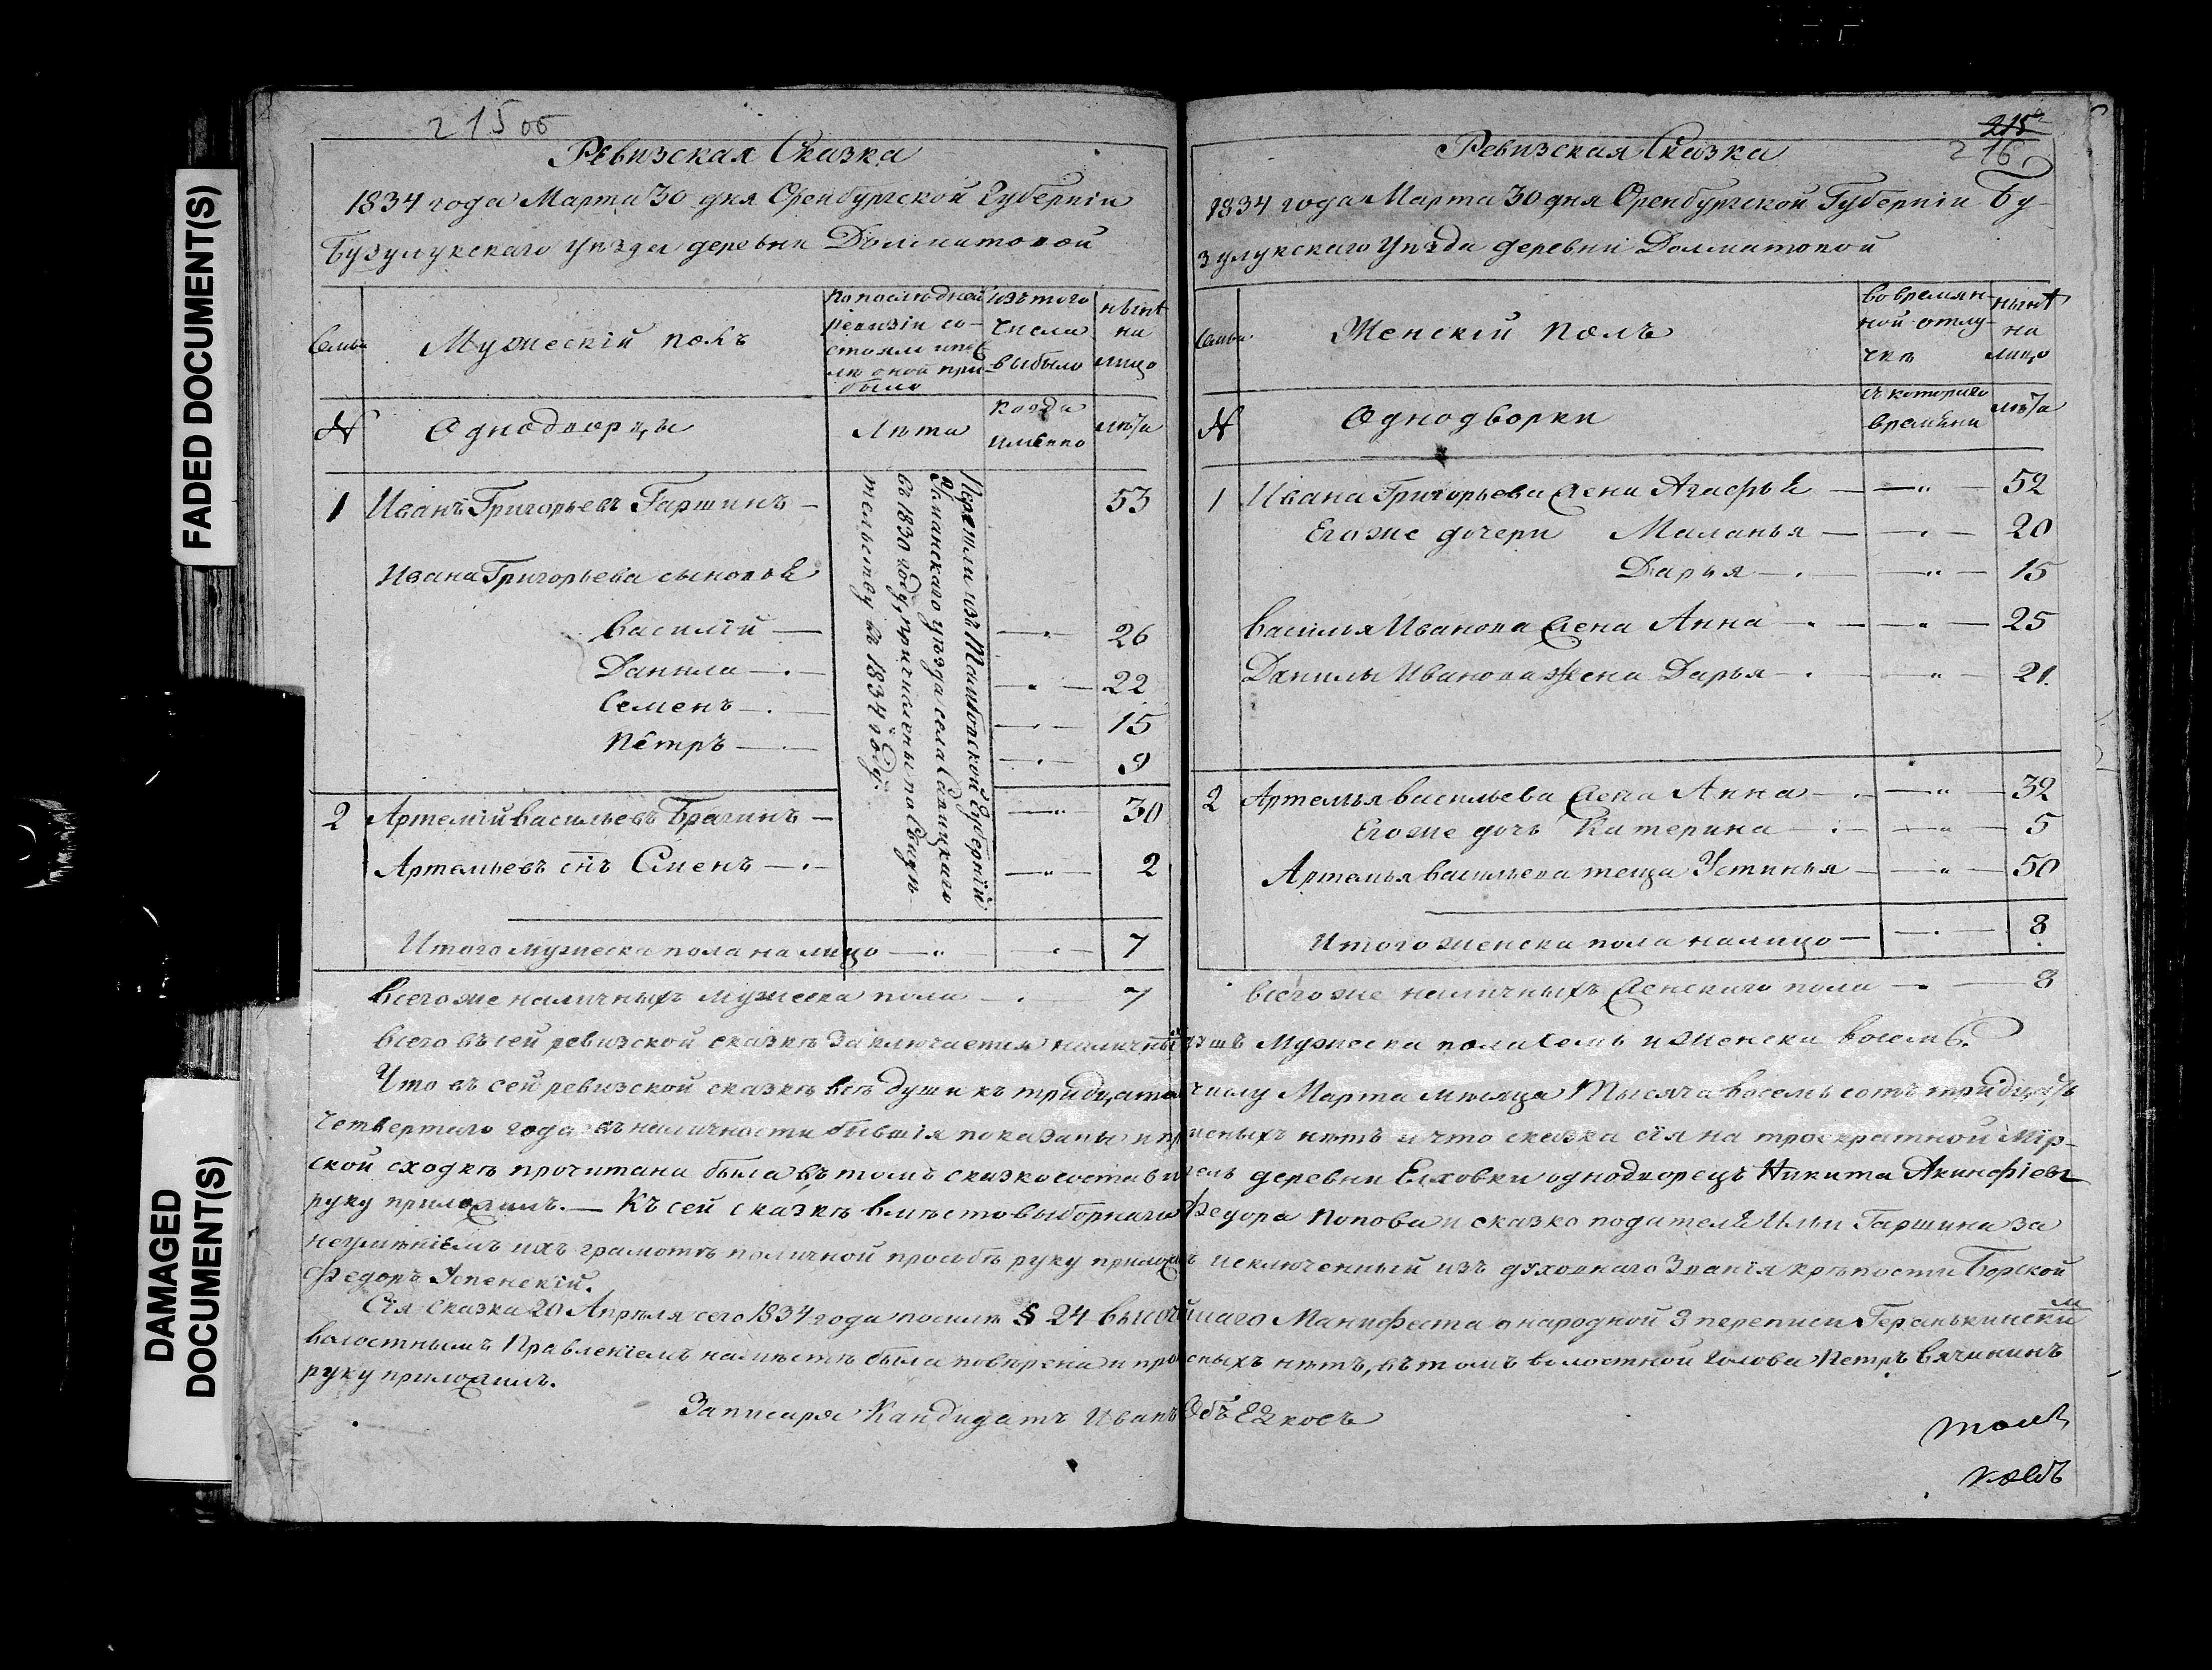 FADED DOCUMENT(S)
DAMAGED
DOCUMENT(S)
215 об
Ревизская Сказка
1834 года Марта 30 дня Оренбургской Губерніи
Бузулукскаго уѣзда деревни Долматовой
Семьи
Мужескій полъ
по послѣдней
ревизіи со-
стояло и пос
лѣ оной при-
было
изъ того
числа
выбыло
нынѣ
на
лицо
№
Однодворцы
Лѣта
когда
именно
лѣта
1 Иванъ Григорьевъ Гаршинъ — 53
Ивана Григорьева сыновья
Василій — 26
Данила — 22
Семенъ — 15
Пётръ — 9
2 Артемій Васильевъ Брагинъ — 30
Артемьевъ снъ Семенъ — 2
Перешли изъ Тамбовской Губерніи
уѣзда села
въ 1830 году, причислены по
тельству въ 1834 году.
Итого мужеска пола на лицо — 7
Всего же наличныхъ мужеска пола — 7
215
216
Ревизская Сказка
1834 года Марта 30 дня Оренбургской Губерніи Бу-
зулукскаго уѣзда деревни Долматовой
Семьи
Женскій полъ
во времян-
ной отлу-
чкѣ
нынѣ
на
лицо
№
Однодворки
съ котораго
времяни
лѣта
1 Ивана Григорьева жена Агафья — 52
Его же дочери Маланья — 20
Дарья — 15
Василья Иванова жена Анна — 25
Данилы Иванова жена Дарья — 21.
2 Артемья Васильева жена Анна — 32
Его же дочь Катерина — 5
Артемья Васильева теща Устинья — 50
Итого женска пола налицо — 8
Всего же наличныхъ женскаго пола — 8
Всего въ сей ревизской сказкѣ заключается наличныхъ душъ Мужеска пола семь и женска восемь.
Что въ сей ревизской сказкѣ всѣ души къ тридцато числу Марта мѣсяца Тысяча восемь сотъ тридцать
четвертаго года въ наличности бывшія показаны и про писныхъ нѣтъ и что сказка сія на троекратной Мір-
ской сходкѣ прочитана была въ томъ сказкосостави тель деревни Елховки однодворецъ Никита Акинфіевъ
руку приложилъ. — Къ сей сказкѣ вмѣсто выборнаго Федора Попова и сказкоподателя Ильи Гаршина за
неумѣніемъ ихъ грамотѣ по личной просьбѣ руку прилож исключенный изъ духовнаго Званія крѣпости Борской
Федоръ Успенскій.
Сія сказка 20 Апрѣля сего 1834 года по силѣ § 24 высочайшаго Манифеста о народной 8 переписи Геранькински м
волостнымъ Правленіемъ на мѣстѣ была повѣрена и про писныхъ нѣтъ, въ томъ волостной Голова Петръ Вячинъ
руку приложилъ.
За писаря Кандидатъ Иванъ